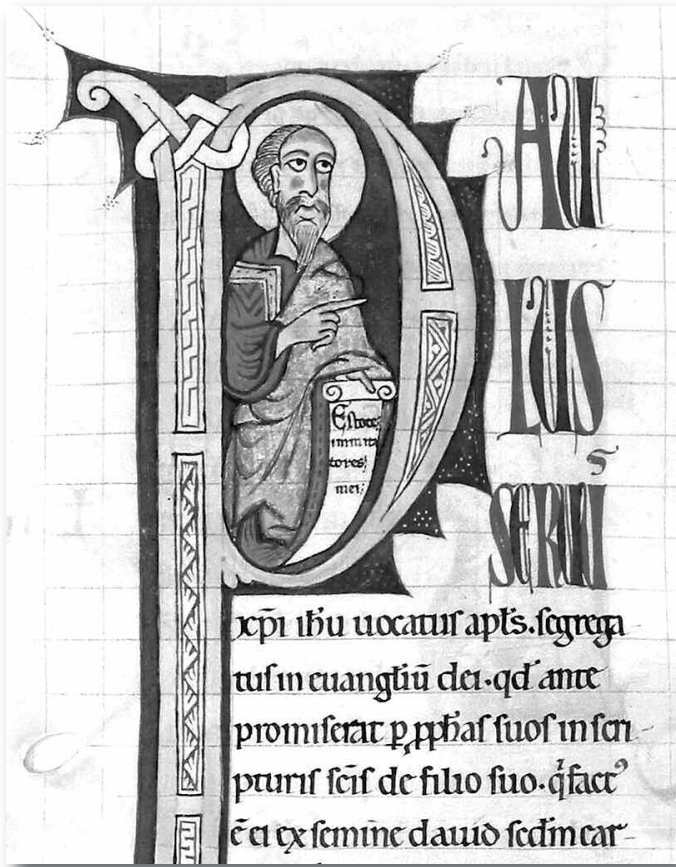 PAU
LUS
SERUUˢ
Estote
immita
tores
mei
xp̄i ih̄u uocatus apl̄s. segrega
tus in euangl̄iū dei. qd̄ ante
promiserat p̱ p̱ph̄as suos in scri
pturis sc̄is de filio suo. q̄ factꝰ
ē ei ex semine dauid scd̄m car-